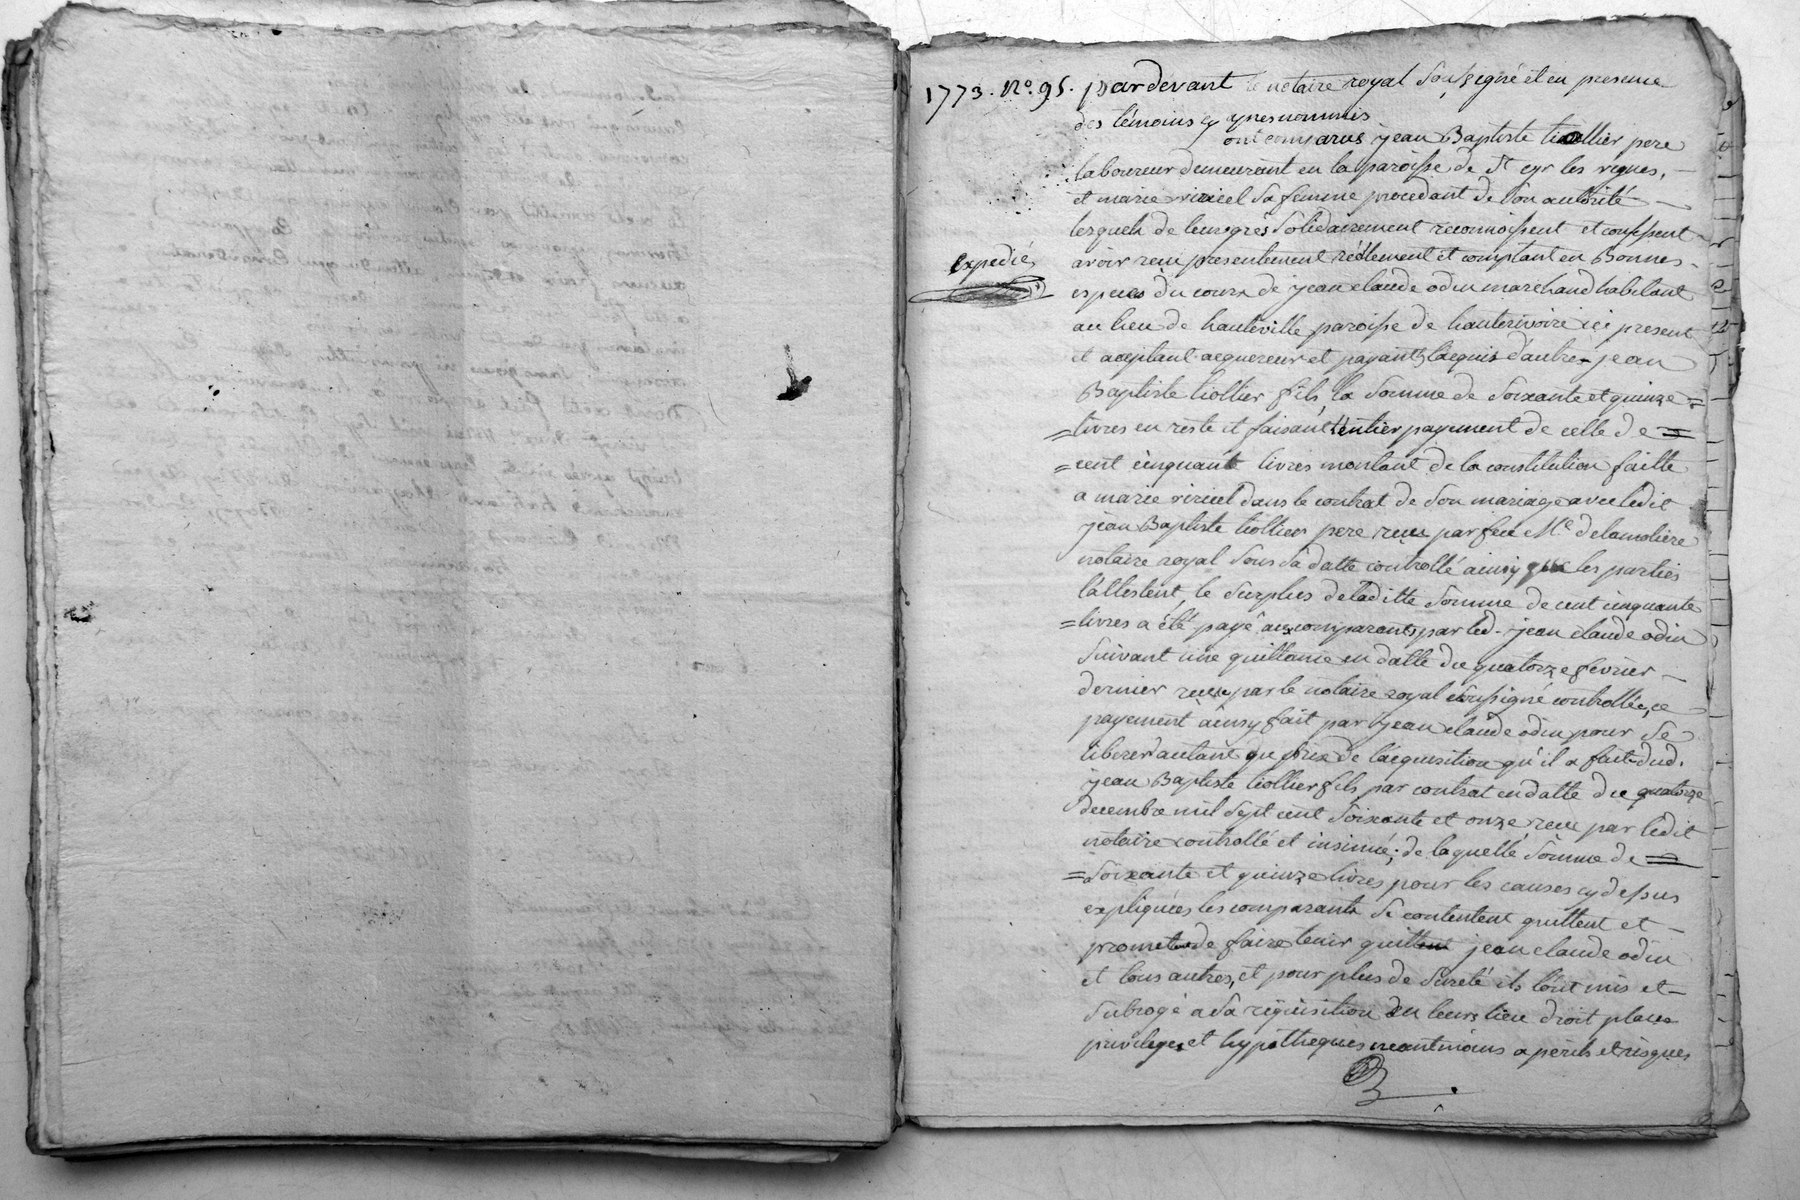 1773. No. 95. pardevant le notaire royal Soussigné et en presence
des témoins cy apres nommés
ont comparus jean Baptiste tiollier pere
laboureur demeurant en la paroisse de St cyr les vignes,
et marie viricel Sa femme procedant de Son autorité
lesquels de leurs grés Solidairement reconnoissent et confessent
Expedié
avoir reçu presentement réellement et comptant en Bonnes
especes du cours de jean claude odin marchand habitant
au lieu de hauteville paroisse de hauterivoire ici present
et acceptant acquereur et payant l'acquis d'autre jean
Baptiste tiollier fils, la Somme de Soixante et quinze =
= livres en reste et faisant l'entier payement de celle de =
= cent cinquante livres montant de la constitution faitte
a marie viricel dans le contrat de Son mariage avec ledit
jean Baptiste tiollier pere reçu par feu Me delamoliere
notaire royal Sous Sa datte controllé ainsy que les parties
l'attestent, le Surplus de laditte Somme de cent cinquante
= livres a été payé aux comparants par led. jean claude odin
Suivant une quittance en datte du quatorze fevrier
dernier reçue par le notaire royal soussigné controllée, ce
payement ainsy fait par jean claude odin pour Se
liberer d'autant du prix de l'acquisition qu'il a fait dud.
jean Baptiste tiollier fils par contrat en datte du quatorze
decembre mil Sept cent Soixante et onze, reçu par ledit
notaire controllé et insinué; de laquelle Somme de =
= Soixante et quinze livres pour les causes cy dessus
expliquées les comparants Se contentent quittent et
promettent de faire tenir quitte jean claude odin
et tous autres, et pour plus de Sureté ils l'ont mis et
Subrogé a Sa requisition en leurs lieu droit place
privileges et hypotheques neantmoins a perils et risques